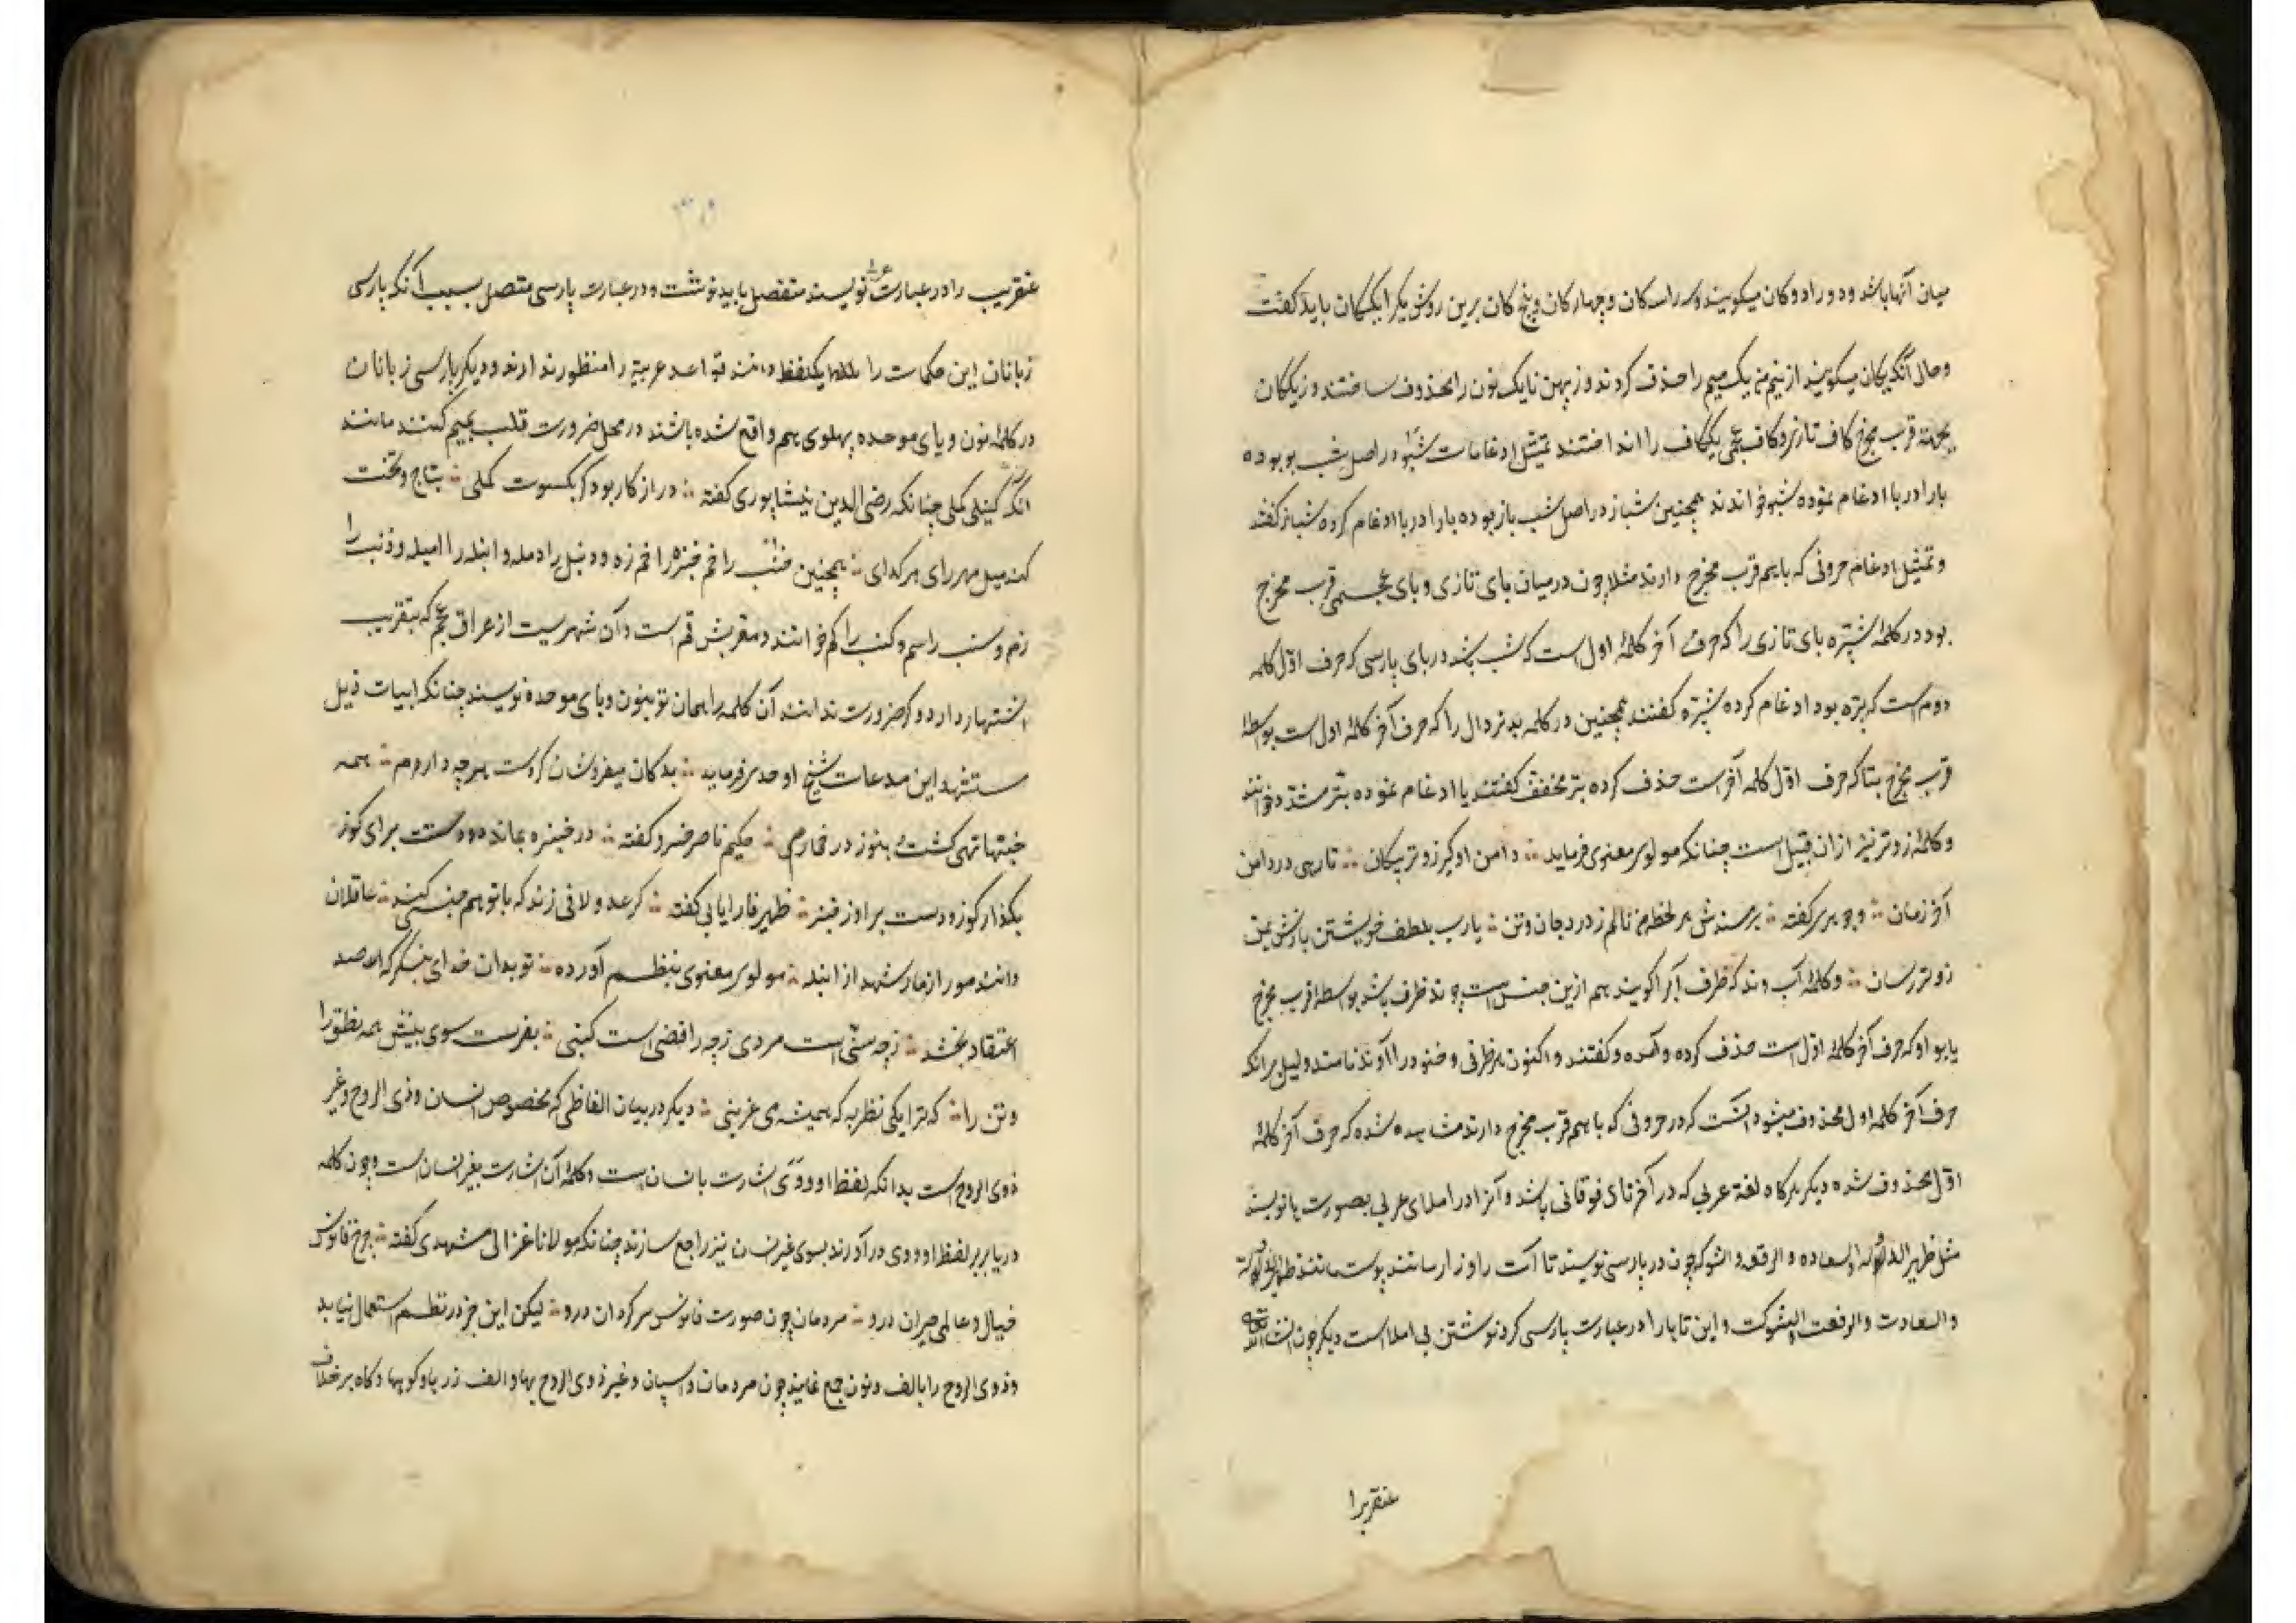 میان آنها باشد و دو را دوکان میکویند و سه را سه‌کان و چهارکان و پنج کان برین روش یکرا یککان باید کفت
و حالی آنکه یکان میکویند از نیم من یک میم را حذف کردند و از پهن نا یک نون را محذوف ساختند و ز یککان
بجهة قرب مخرج کاف تازی و کاف عجمی یک کاف را انداختند تمثیل ادغامات شبو در اصل شب بو بوده
با را در با ادغام نموده شبو خواندند همچنین شباز در اصل شب باز بوده با را در با ادغام کرده شباز کفتند
و تمثیل ادغام حروفی که باهم قرب مخرج دارند مثلا چون درمیان بای تازی و بای عجمی قرب مخرج
بود در کلمهٔ شپره بای تازی را که حرف آخر کلمهٔ اول است که شب باشد در بای پارسی که حرف اول کلمه
دوم است که پره بود ادغام کرده شپره کفتند همچنین در کلمه بدتر دال را که حرف آخر کلمهٔ اول است بواسطهٔ
قرب مخرج بتا که حرف اول کلمه آخر است حذف کرده بتر مخفف کفتند یا ادغام نموده بتر مشدد خوانند
و کلمهٔ زوتر نیز ازان قبیل است چنانکه مولوی معنوی فرماید دامن او کیر زوتر بیکان تا رهی در دامن
آخر زمان و جوهری کفته بر سندش هر لحظه من نالم ز درد جان و تن یارب بلطف خویشتن بازش بمن
زوتر رسان و کلمهٔ آب وند که ظرف آبرا کویند هم ازین جنس است چه وند ظرف باشد بواسطهٔ قرب مخرج
با بواو که حرف آخر کلمهٔ اول است حذف کرده و آوند کفتند و اکنون هر ظرفی و خنور را آوند نامند و لیل برانکه
حرف آخر کلمهٔ اول محذوف میشود اینست که در حروفی که باهم قرب مخرج دارند مشاهده شده که حرف آخر کلمهٔ
اول محذوف شده دیکر هرکاه لغة عربی که در آخر تای فوقانی باشد و آنرا در املای عربی بصورت ها نویسند
مثل ظهیر الدوله والسعاده و الرفعه والشوکه چون در پارسی نویسند تا آت را دراز رسانند مانند ظهیر الدولت
والسعادت والرفعت والشوکت و این تا را در عبارت پارسی کرد نوشتن بی املا است دیکر چون انشاء الله
عنقریب را
عنقریب را در عبارت عربی نویسند منفصل باید نوشت و در عبارت پارسی متصل بسبب آنکه پارسی
زبانان این کلمات را یکلفظ دانند قواعد عربیة را منظور ندارند و دیکر پارسی زبانان
در کلمه نون و بای موحده پهلوی هم واقع شده باشند در محل ضرورت قلب بمیم کنند مانند
آنکه کنبلی کملی چنانکه رضی الدین نیشاپوری کفته دراز کار بود کر بکسوت کملی بتاج و تخت
کند میل مهر رای هر کدای همچنین خنب را خم خنبره را خمره و دنبل را دمل و انبله را امیله و ذنب را
زم و سنب را سم و کنب را کم خوانند و معربش قم است و آن شهریست از عراق عجم که بتقریب
اشتهار دارد و کر ضرورت ندانند آن کلمه را همان تو بنون و بای موحده نویسند چنانکه ابیات ذیل
مستشهد این مدعاست شیخ اوحدی فرماید بدکان میفروشان کروست هرچه دارم همه
خنبها تهی کشت و هنوز در خمارم حکیم ناصر خسرو کفته در خنبره بماند دو دستت برای کوز
بکذار کوز و دست براور ز خنبره ظهیر فاریابی کفته کر عدو لافی زند که با تو هم جنبش کند عاقلان
دانند مور از مار و شهد از انبله مولوی معنوی بنظم آورده تو بدان خدای بنکر که صد
اعتقاد بخشد ز چه سنی است مردی ز چه رافضی است کنبی بفرست سوی بینش همه نطق را
و تن را که ترا یکی نظر به که همیشه می غرینی دیکر در بیان الفاظی که مخصوص انسان و ذی الروح و غیر
ذوی الروح است بدانکه لفظ او و وی اشارت بانسان است و کلمهٔ آن اشارت بغیر انسان است و چون کلمه
در یا بر بر لفظ او و وی درآورند بسوی غیر انسان نیز راجع سازند چنانکه مولانا غزالی مشهدی کفته چرخ فانوس
خیال و عالمی حیران درو مردمان چون صورت فانوس سرکردان درو لیکن این جز در نظم استعمال نیابد
و ذوی الروح را بالف و نون جمع نمایند چون مردمان و اسپان و غیر ذوی الروح بها و الف زرها و کوهها و کاه برخلاف